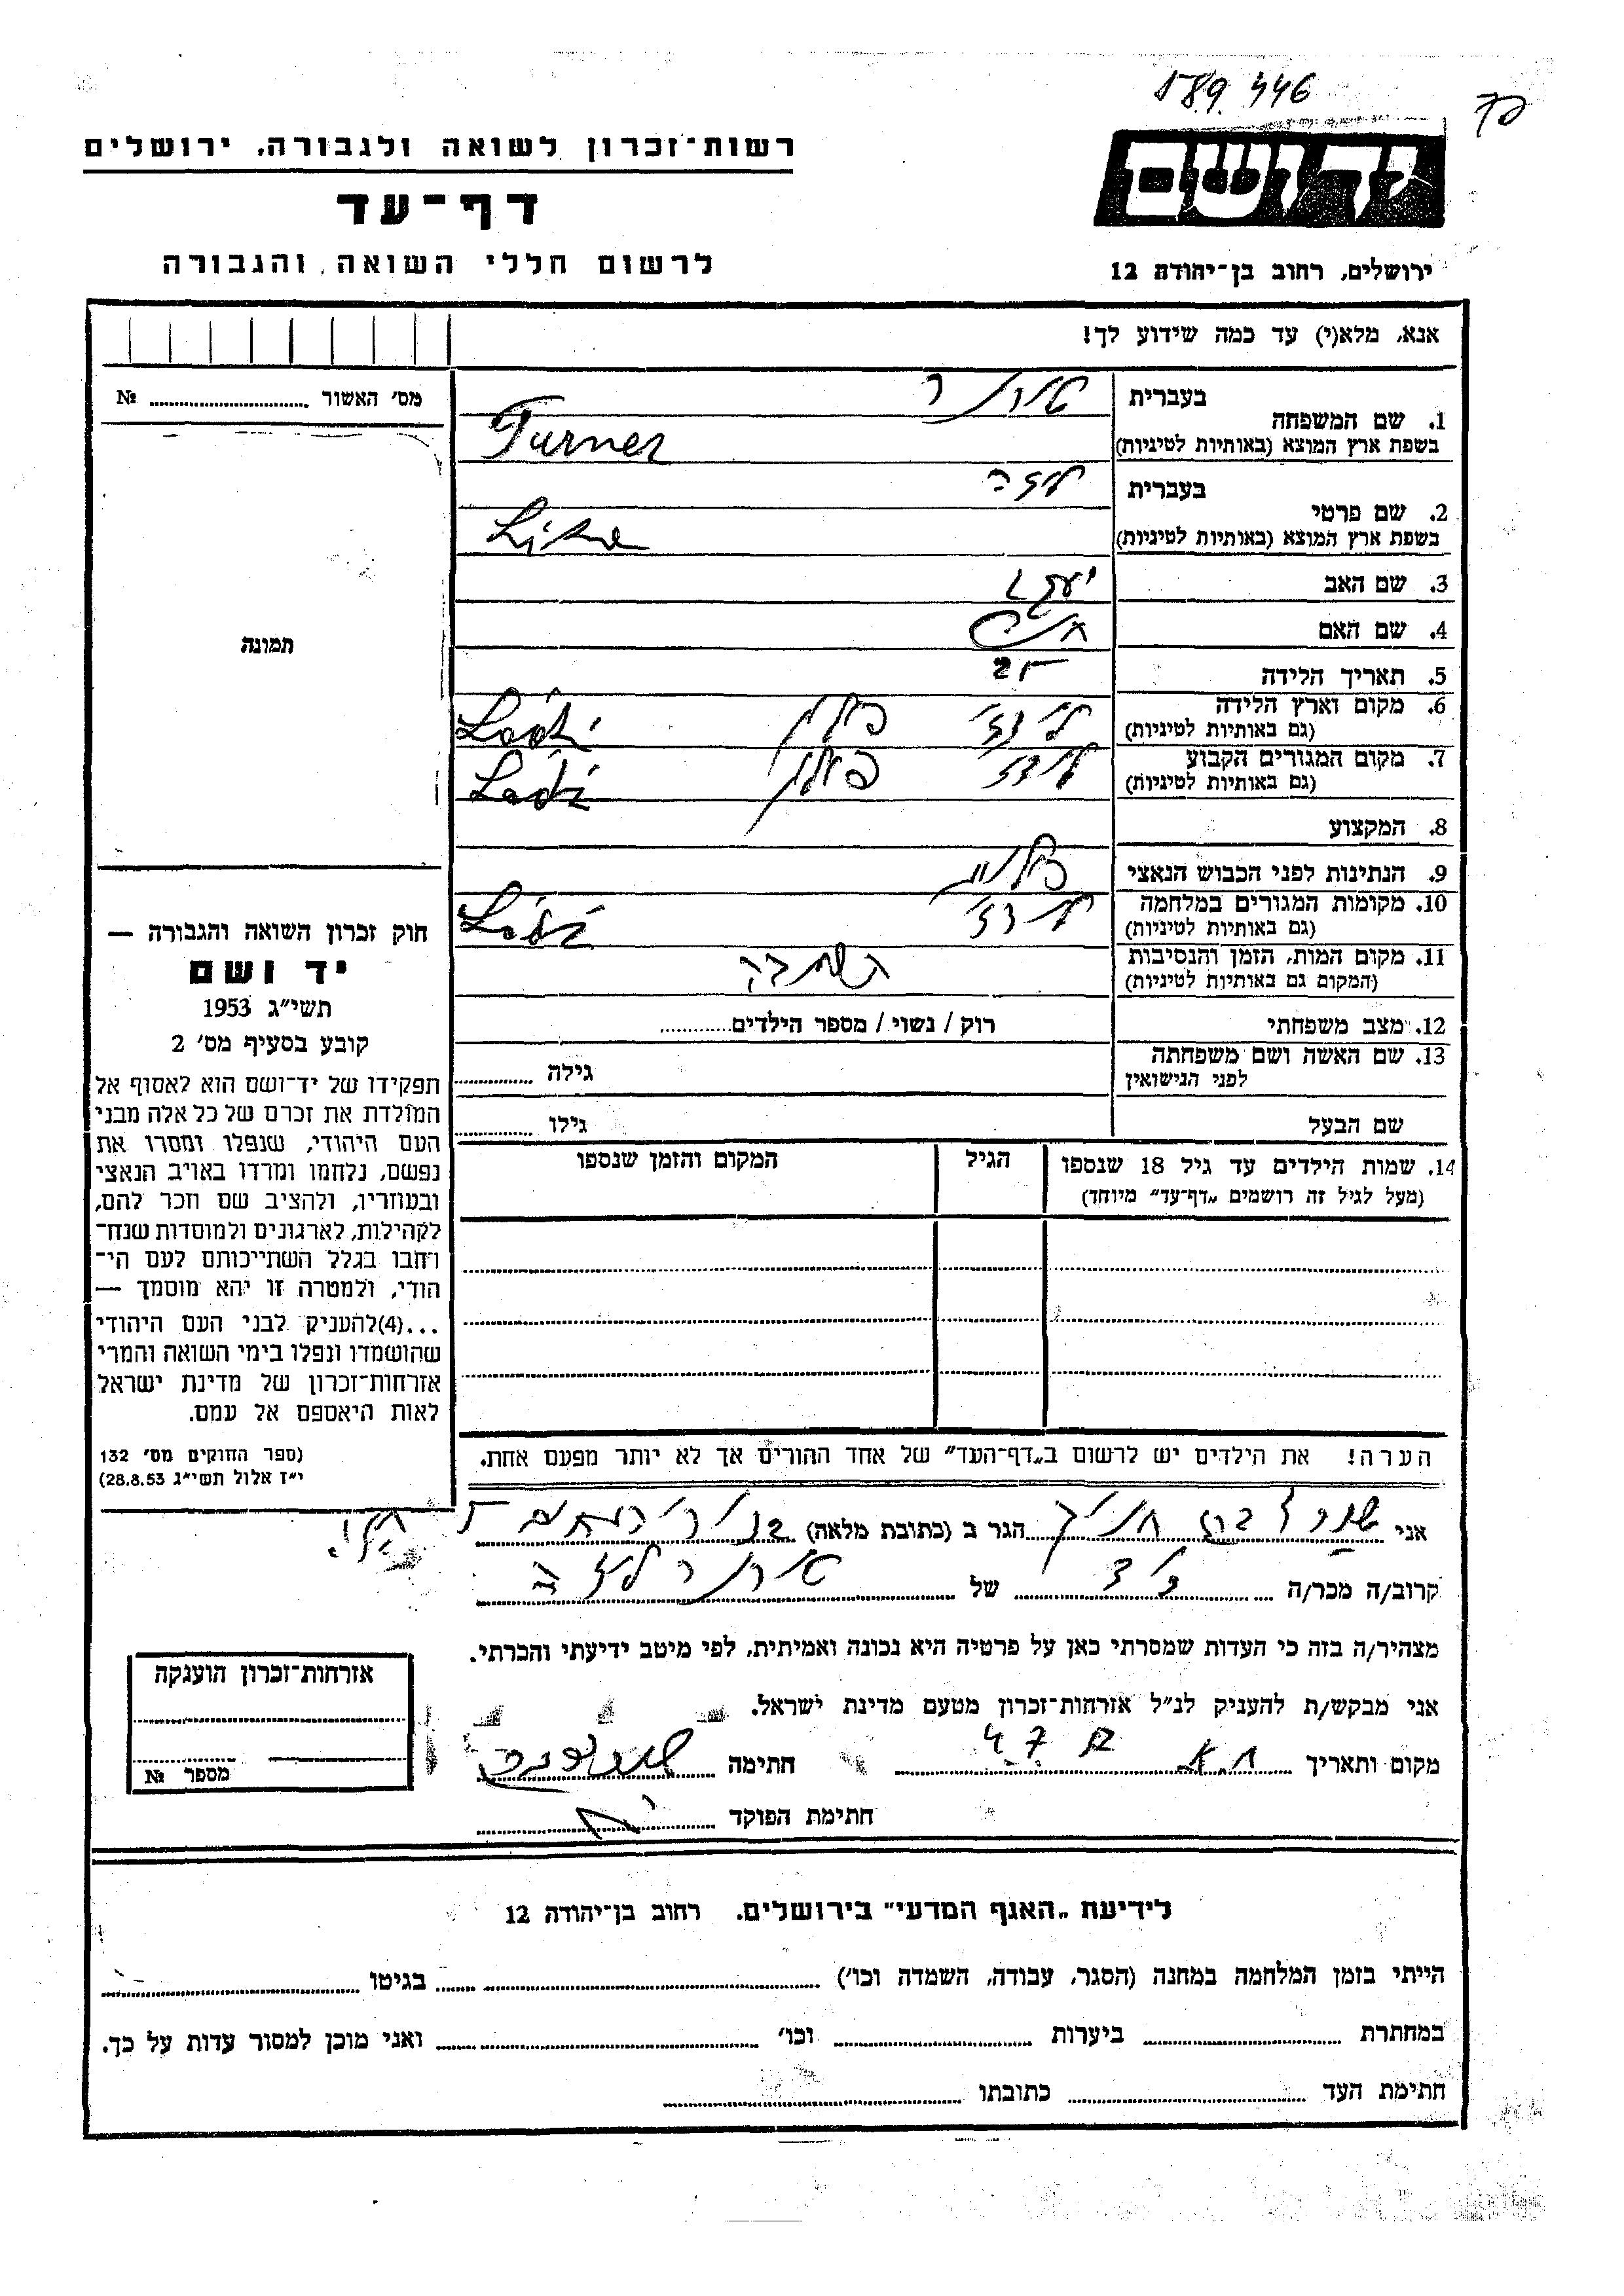 189 446
יד ושם
רשות־זכרון לשואה ולגבורה, ירושלים
דף־עד
לרשום חללי השואה והגבורה
ירושלים, רחוב בן־יהודה 12
אנא, מלא(י) עד כמה שידוע לך!
מס׳ האשור № 
בעברית טורנר
1. שם המשפחה
בשפת ארץ המוצא (באותיות לטיניות) Turner
בעברית ליזה
2. שם פרטי
בשפת ארץ המוצא (באותיות לטיניות)
3. שם האב יעקב
4. שם האם
5. תאריך הלידה
6. מקום וארץ הלידה לודז׳ פולין Łódź
(גם באותיות לטיניות)
7. מקום המגורים הקבוע לודז׳ פולין Łódź
(גם באותיות לטיניות)
8. המקצוע
9. הנתינות לפני הכבוש הנאצי פולנית
10. מקומות המגורים במלחמה לודז׳ Łódź
(גם באותיות לטיניות)
11. מקום המות, הזמן והנסיבות השמדה
(המקום גם באותיות לטיניות)
12. מצב משפחתי רוק / נשוי / מספר הילדים
13. שם האשה ושם משפחתה גילה
לפני הנישואין
שם הבעל גילו
תמונה
חוק זכרון השואה והגבורה —
יד ושם
תשי״ג 1953
קובע בסעיף מס׳ 2
תפקידו של יד־ושם הוא לאסוף אל
המולדת את זכרם של כל אלה מבני
העם היהודי, שנפלו ומסרו את
נפשם, נלחמו ומרדו באויב הנאצי
ובעוזריו, ולהציב שם וזכר להם,
לקהילות, לארגונים ולמוסדות שנח־
רחבו בגלל השתייכותם לעם הי־
הודי, ולמטרה זו יהא מוסמך —
...(4)להעניק לבני העם היהודי
שהושמדו ונפלו בימי השואה והמרי
אזרחות־זכרון של מדינת ישראל
לאות היאספם אל עמם.
(ספר החוקים מס׳ 132
י״ז אלול תשי״ג 28.8.53)
14. שמות הילדים עד גיל 18 שנספו הגיל המקום והזמן שנספו
(מעל לגיל זה רושמים „דף־עד״ מיוחד)
הערה! את הילדים יש לרשום ב„דף־העד״ של אחד ההורים אך לא יותר מפעם אחת.
אני הגר ב (כתובת מלאה)
קרוב/ה מכר/ה של טורנר ליזה
מצהיר/ה בזה כי העדות שמסרתי כאן על פרטיה היא נכונה ואמיתית, לפי מיטב ידיעתי והכרתי.
אני מבקש/ת להעניק לנ״ל אזרחות־זכרון מטעם מדינת ישראל.
מקום ותאריך חתימה
חתימת הפוקד
אזרחות־זכרון הוענקה
מספר №
לידיעת „האגף המדעי״ בירושלים. רחוב בן־יהודה 12
הייתי בזמן המלחמה במחנה (הסגר, עבודה, השמדה וכו׳) בגיטו
במחתרת ביערות וכו׳ ואני מוכן למסור עדות על כך.
חתימת העד כתובתו